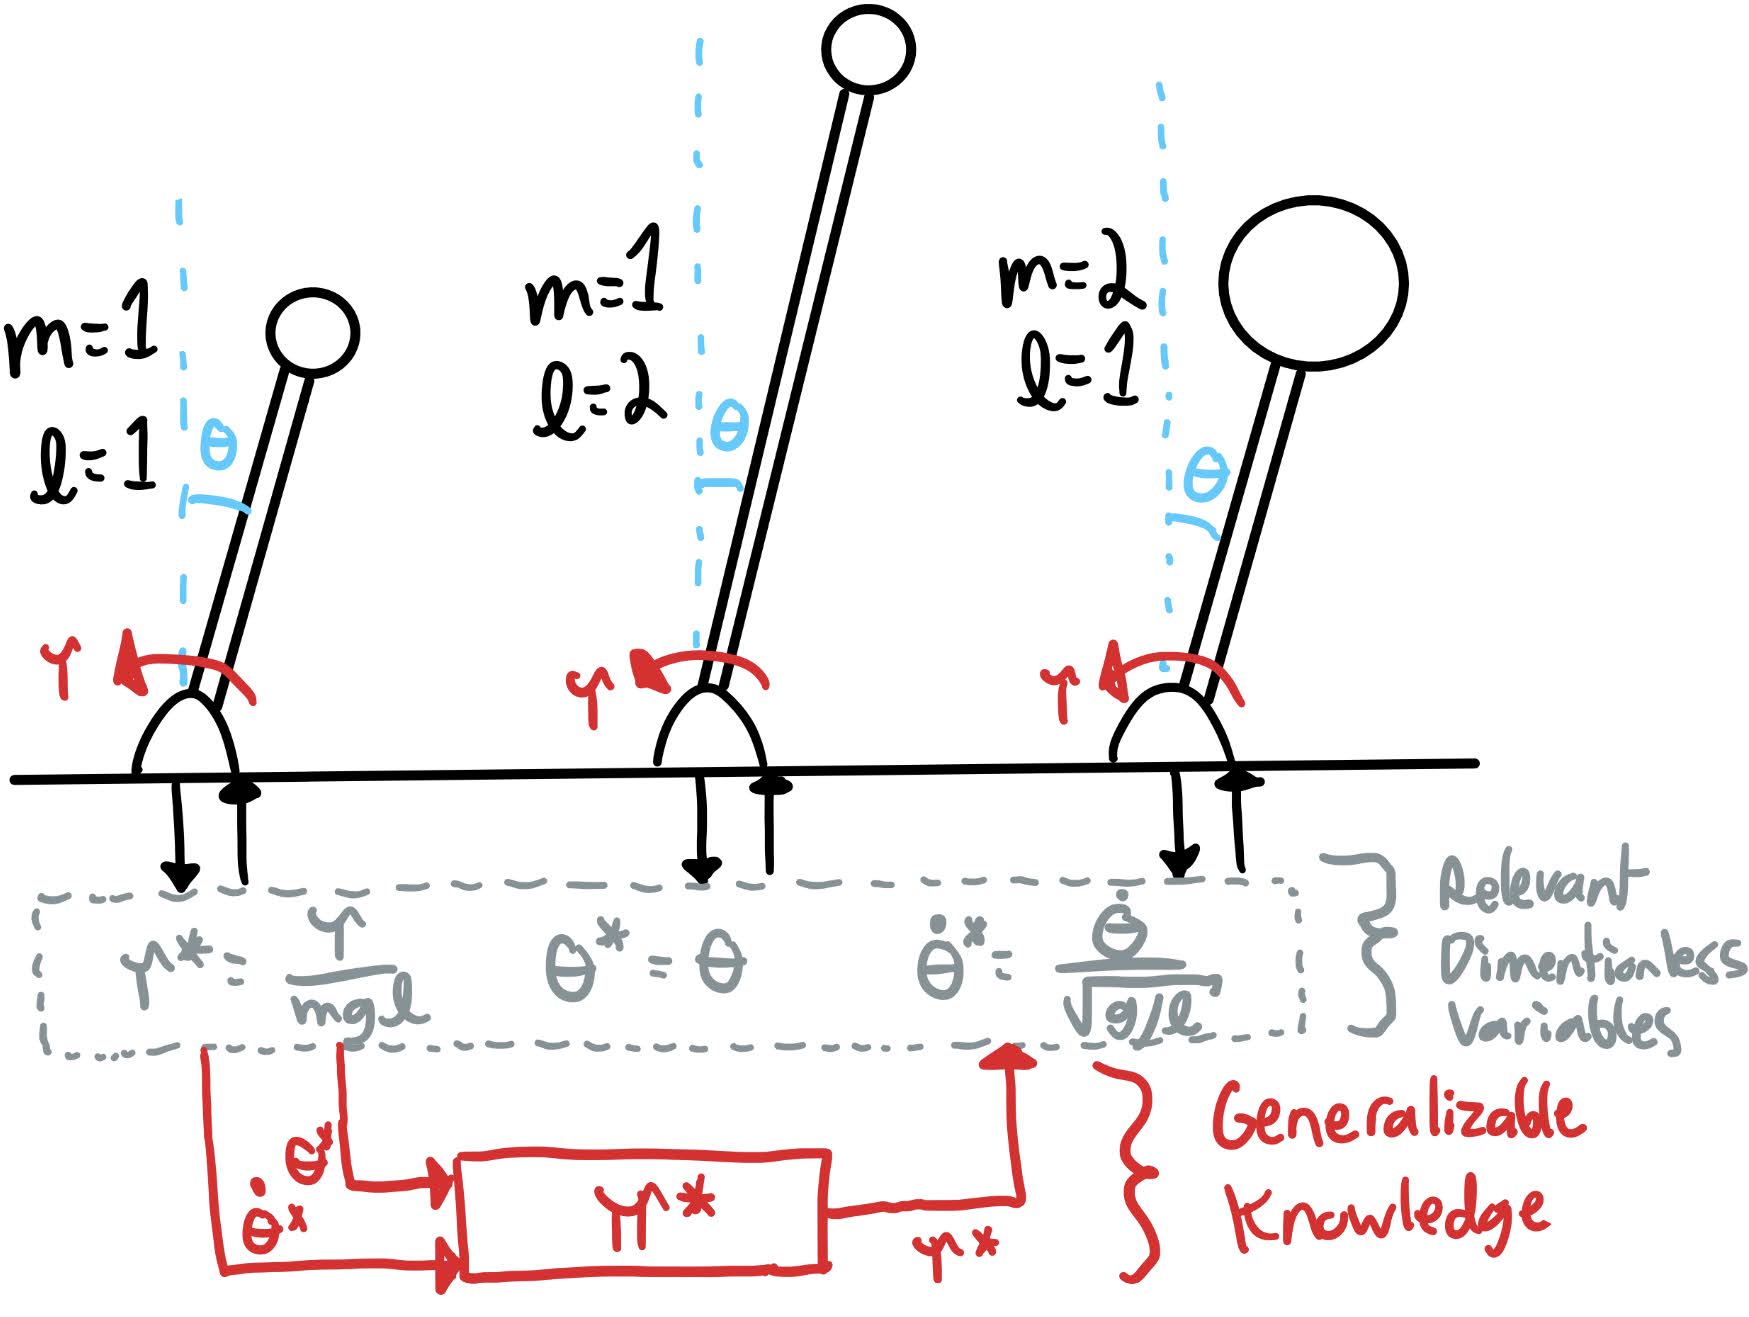 m=1
l=1
θ
τ
m=1
l=2
θ
τ
m=2
l=1
θ
τ
τ* = τ/mgl θ* = θ θ̇* = θ̇/√g/l
Relevant
Dimentionless
Variables
θ*
θ̇*
π*
τ*
Generalizable
Knowledge